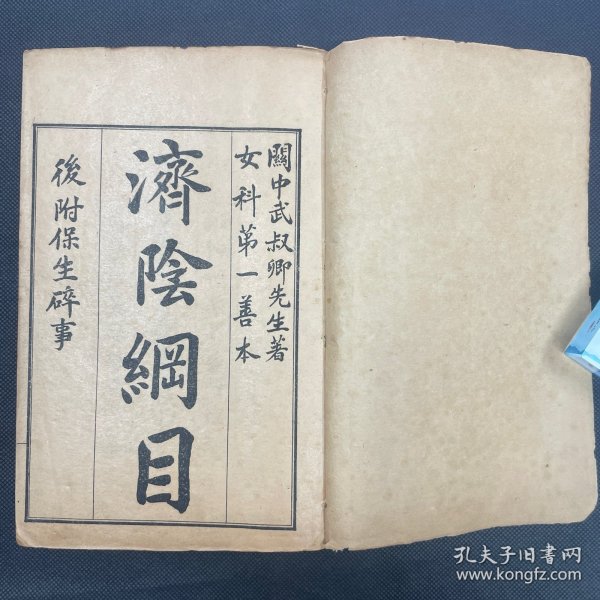 關中武叔卿先生著
女科第一善本
濟陰綱目
後附保生碎事
孔夫子旧书网
www.kongfz.com